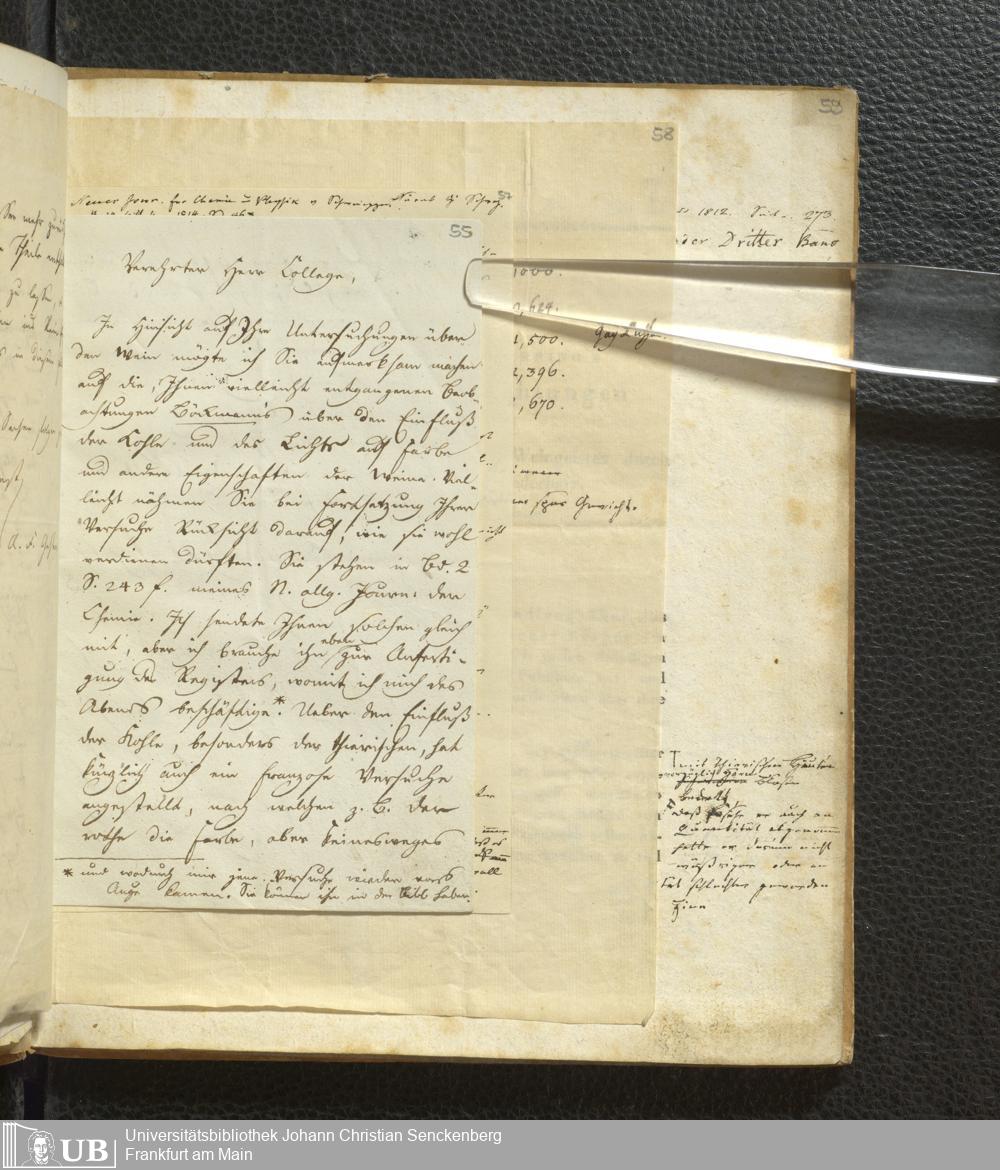 59
58
Neues Journ. für Chemie u Physik v Schweigger
55
1812. Seit. 273.
oder Dritter Band
Verehrter Herr College,
In Hinsicht auf Ihre Untersuchungen über
den Wein mögte ich Sie aufmerksam machen
auf die, Ihnen vielleicht entgangenen Beob-
achtungen Böckmann's über den Einfluß
der Kohle und des Lichts auf Farbe
und andere Eigenschaften der Weine. Viel-
leicht nähmen Sie bei Fortsetzung Ihrer
Versuche Rücksicht darauf, wie sie wohl
verdienen dürften. Sie stehen in Bd. 2
S. 243 f. meines N. allg. Journ: der
Chemie. Ich sendete Ihnen solchen gleich
mit, aber ich brauche ihn eben zur Anferti-
gung des Registers, womit ich mich des
Abends beschäftige*. Ueber den Einfluß
der Kohle, besonders der thierischen, hat
kürzlich auch ein Franzose Versuche
angestellt, nach welchen z. B. der
rothe die Farbe, aber keinesweges
* und wodurch mir jene Versuche wieder vors
Auge kamen. Sie können ihn in der Bibl haben.
1000.
,624.
1,500.
2,396.
,670.
spec Gewicht.
mit thierischen Häuten
vorzüglich
Blasen
bedeckt,
daß er auch an
Quantität abgenommen
hatte er darum nicht
wäßriger oder an
schlechter geworden
Universitätsbibliothek Johann Christian Senckenberg
Frankfurt am Main
UB